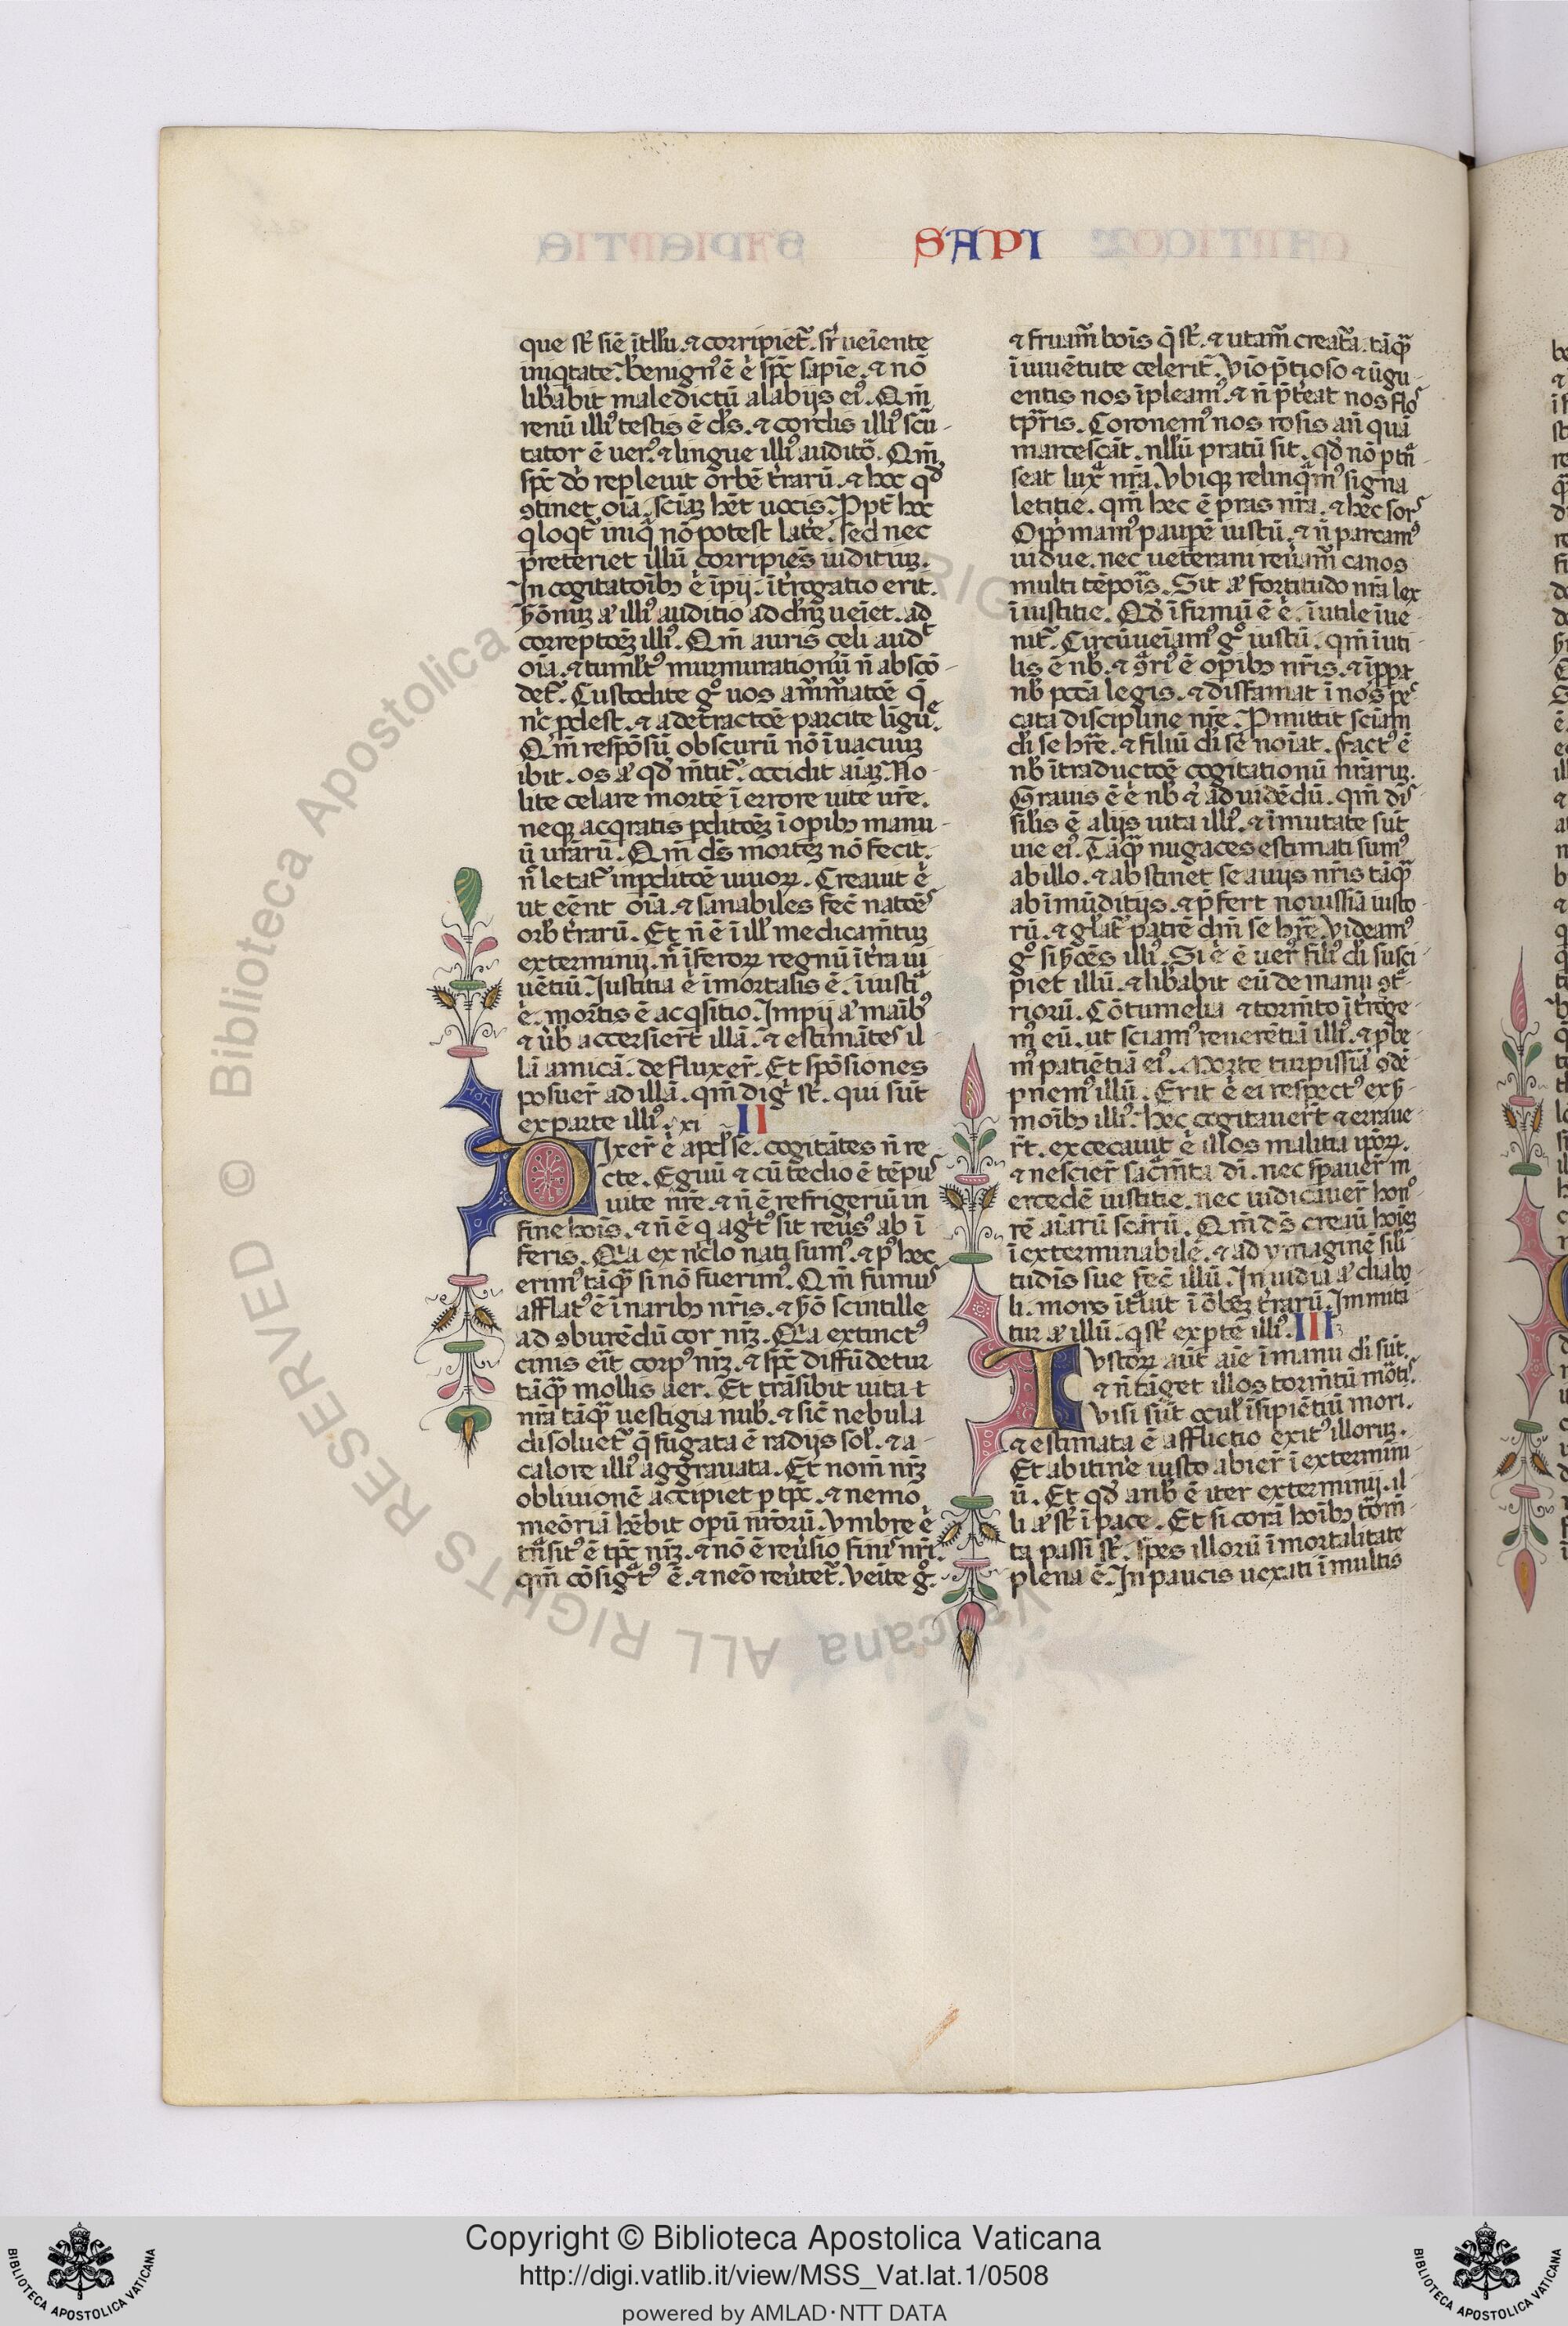 SAPI
que st̄ siē ītllu. ⁊ corripiet̄. sr̄ ueiente
iniqtate. benign' ē ē spc̄ sapie. ⁊ nō
libabit maledictū alabijs ei'. Qm̄
renū illi' testis ē ds̄. ⁊ cordis illi' scū-
tator ē uer'. ⁊ lingue illi' auditō. Qm̄
spc̄ dn̄ repleuit orbē tr̄arū. ⁊ hoc qd
ɔtinet oīa. sciāꝫ hēt uocis. Ppt̄ hoc
q loqt̄ iniq̄ nō potest late'. sed nec
preteriet illū corripies iuditiuꝫ.
In cogitatoībꝫ ē īpij. īt̄rogatio erit.
ꞩmōnuꝫ aͥ illi' auditio ad dm̄ ueīet. ad
correptōeꝫ illi'. Qm̄ auris celi audit
oīa. ⁊ tumlt' murmurationū n̄ abscō-
det̄. Custodite gͦ uos a mmatōe q̄
nc̄ pdest. ⁊ a detractōe parcite ligue.
Qm̄ respōsū obscurū nō ī uacuuꝫ
ibit. os aͥ qd m̄tit̄. occidit aīaꝫ. No-
lite celare mortē ī errore uite ur̄e.
neqꝫ acqratis pditōeꝫ ī opibꝫ manu-
ū ur̄arū. Qm̄ ds̄ morteꝫ nō fecit.
n̄ letat̄ in pditōe uiuoꝝ. Creauit ē
ut eēnt oīa. ⁊ sanabiles fec̄ natōes
orb tr̄arū. Et n̄ ē ī ill' medicam̄tuꝫ
exterminij. n̄ īferoꝝ regnū ī tr̄a ui
uētiū. Justitia ē īmortalis ē. īiusti
ē. mortis ē acqsitio. Impij aͥ maībꝫ
⁊ ūb accersier̄t illā. ⁊ estimātes il
lā amicā. defluxer̄. Et spōsiones
posuer̄ ad illā. qm̄ diḡ st̄. qui sūt
ex parte illi'. xi II
Dixer̄ ē apl̄ se. cogitātes n̄ re
cte. Eguū ⁊ cū tedio ē tēpus
uite nr̄e. ⁊ n̄ ē refrigeriū in
fine hoīs. ⁊ n̄ ē q agt̄' sit reūs' ab ī
feris. Qia ex nc̄lo nati sum'. ⁊ p' hec
erim' tāqꝫ si nō fuerim'. Qm̄ fumus
afflat' ē ī naribꝫ nr̄is. ⁊ ꞩmō scintille
ad ɔburēdū cor nr̄ꝫ. Qia extinct'
cinis eit̄ corp' nr̄ꝫ. ⁊ spc̄ diffūdetur
tāqꝫ mollis aer. Et trāsibit uita t
nr̄a tāqꝫ uestigia nub. ⁊ sic̄ nebula
disoluet̄ q̄ fugata ē radijs sol'. ⁊ a-
calore illi' aggrauata. Et nom̄ nr̄ꝫ
obliuionē accipiet p tpc̄. ⁊ nemo
meōriā hēbit opū nr̄orū. Vmbre ē
tn̄sit' ē tpc̄ nr̄ꝫ. ⁊ nō ē reūsio finis nr̄i.
qm̄ cōsigt' ē. ⁊ neō reūtet̄. Veīte gͦ.
⁊ fruam̄ boīs q̄ st̄. ⁊ utam̄ creat̄a. tāqꝫ
ī iuuētute celerit̄. Vīo p̄tioso ⁊ ūgu-
entis nos īpleam'. ⁊ n̄ p̄tereat nos flos
tpr̄is. Coronem' nos rosis an̄ quā
marcescāt. nllū pratū sit. qd nō ptn̄-
seat lux̄ nr̄a. Vbiqꝫ relinqm̄' signa
letitie. qm̄ hec ē pras nr̄a. ⁊ hec sors
Opp̄mam' paupē iustū. ⁊ n̄ parcam'
uidue. nec ueterani reūam̄ canos
multi tēpoīs. Sit aͥ fortitudo nr̄a lex
īiustitie. Qd īfirmū ē ē. īutile īue-
nit̄. Circūueīam' gͦ iustū. qm̄ īuti-
lis ē nb. ⁊ ɔr̄i' ē opibꝫ nr̄is. ⁊ īppt
nb pctā legis. ⁊ diffamat ī nos pec
cata discipline nr̄e. Pmittit sciam
di se hr̄e. ⁊ filiū di se noīat. Fact' ē
nb ī traductōe cogitationū nr̄aruꝫ.
Grauis ē ē nb ⁊ ad uidēdū. qm̄ dis-
silis ē alijs uita illi'. ⁊ īmutate sūt
uie ei'. Tāqꝫ nugaces estimati sum'
ab illo. ⁊ abstinet se a uijs nr̄is tāqꝫ
ab īmūditijs. ⁊ p̄fert nouissīa iusto-
rū. ⁊ glat̄ patrē dm̄ se hr̄e. Videam'
gͦ si ꞩmōes illi'. Si ē ē uer' fili' di susci-
piet illū. ⁊ libabit eū de manij ɔt-
riorū. Cōtumelia ⁊ torm̄to ītroge-
m' eū. ut sciam' reuerētiā illi'. ⁊ pbe
m' patiētiā ei'. Morte turpissīa ɔdē
pnem' illū. Erit ē ei respect' ex ꞩ-
moībꝫ illi'. Hec cogitauer̄t ⁊ erraue-
r̄t. excecauit ē illos malitia ipoꝝ.
⁊ nescier̄ sac̄m̄ta di. nec spauer̄ m̄
ercedē iustitie. nec uidicauer̄ hon'
rē aīarū scārū. Qm̄ ds̄ creauū hoīeꝫ
ī exterminabilē. ⁊ ad ymaginē sili
tudīs sue fec̄ illū. Inuidia aͥ diabo
li. mors ītuit ī ōbeꝫ tr̄arū. Immitā
tur aͥ illū. q st̄ ex pte illi'. III
Iustoꝝ aūt aīe ī manu di sūt.
⁊ n̄ tāget illos torm̄tū mōtis.
Visi sūt ocul' īsipiētiū mori.
⁊ estimata ē afflictio exit' illoruꝫ.
Et ab itine iusto abier̄ ī extermini
ū. Et qd a nb ē iter exterminij. il
li aͥ st̄ ī pace. Et si corā hoībꝫ tōm-
ta passi st̄. spes illorū īmortalitate
plena ē. In paucis uexati ī multis
Copyright © Biblioteca Apostolica Vaticana
http://digi.vatlib.it/view/MSS_Vat.lat.1/0508
powered by AMLAD·NTT DATA
BIBLIOTECA APOSTOLICA VATICANA
BIBLIOTECA APOSTOLICA VATICANA
© Biblioteca Apostolica Vaticana ALL RIGHTS RESERVED